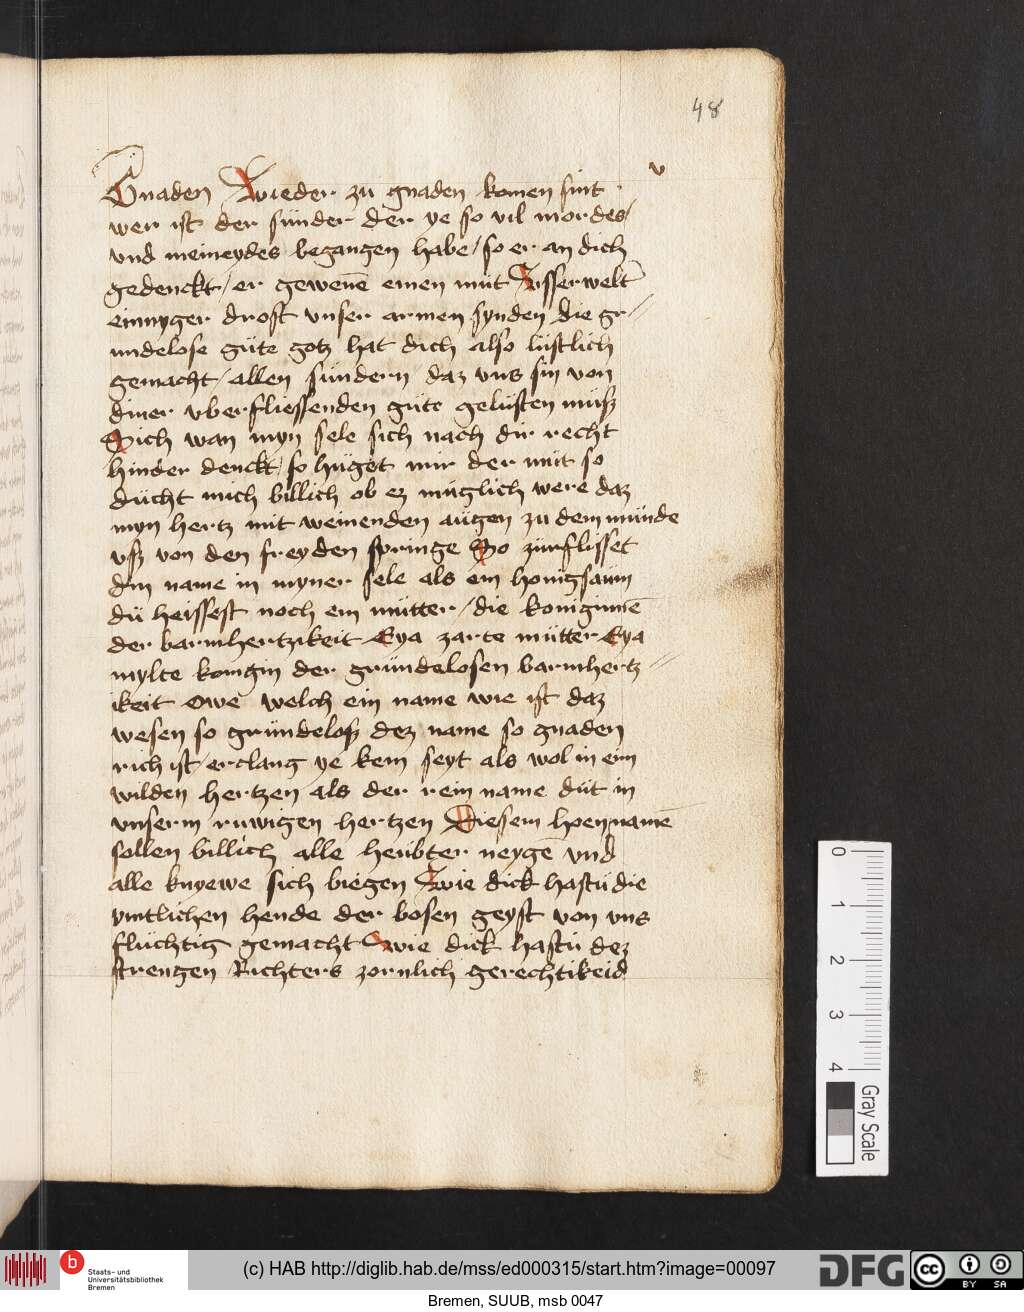 48
v
Gnaden Wieder zu gnaden komen sint
wer ist der sünder der ye so vil mordes/
vnd meineydes begangen habe/so er an dich
gedenckt/er gewenē einen mut Vsserwelt
einnyger drost vnser armen synden die gr//
undelose güte gotz hat dich also lüstlich
gemacht/allen sündern daz vns sin von
diner vberfliessenden güte gelüsten müsz
Sich wan myn sele sich nach dir recht
hinder denckt/so hüget mir der müt so
dücht mich billich ob ez müglich were daz
myn hertz mit weinenden aügen zu dem münde
vsz von den freyden springe So zürflisset
din name in myner sele als ein honigsaüm
dü heissest noch ein mütter/die koniginnē
der barmhertzikeit Eya zarte mütter Eya
mylte konigin der gründelosen barmhertz//
ikeit Owe welch ein name wie ist daz
wesen so gründelosz dez name so gnaden
rich ist/erclang ye kein seyt als wol in eim
wilden hertzen als der rein name düt in
vnserm ruwigen hertzen Diesem hoen namē
sollen billich alle heübter neygē vnd
alle knyewe sich biegen Wie dick hastu die
vintlichen hende der bosen geyst von vns
flüchtig gemacht Wie dick hastü dez
strengen Richters zornlich gerechtikeid
0
1
2
3
4
Gray Scale
b
Staats- und
Universitätsbibliothek
Bremen
(c) HAB http://diglib.hab.de/mss/ed000315/start.htm?image=00097
DFG
cc
BY SA
Bremen, SUUB, msb 0047